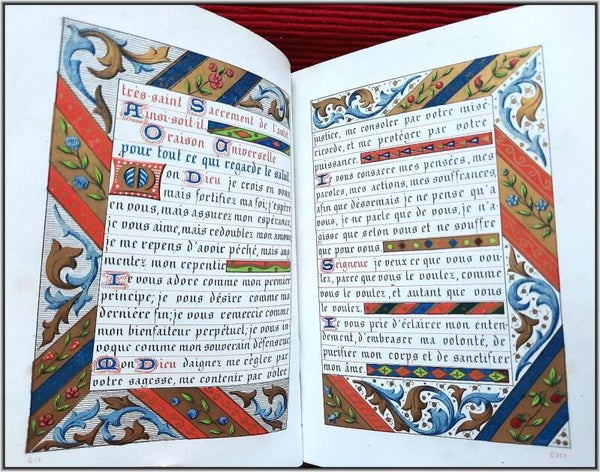 très-saint Sacrement de l'autel.
Ainsi-soit-il.
Oraison Universelle
pour tout ce qui regarde le salut.
Mon Dieu je crois en vous,
mais fortifiez ma foi; j'espère
en vous, mais assurez mon espérance;
je vous aime, mais redoublez mon amour;
je me repens d'avoir péché, mais aug
mentez mon repentir
Je vous adore comme mon premier
principe; je vous désire comme ma
dernière fin; je vous remercie comme
mon bienfaiteur perpétuel; je vous in
voque comme mon souverain défenseur
Mon Dieu daignez me régler par
votre sagesse, me contenir par votre
justice, me consoler par votre misé
ricorde, et me protéger par votre
puissance.
Je vous consacre mes pensées, mes
paroles, mes actions, mes souffrances
afin que désormais je ne pense qu'à
vous, je ne parle que de vous, je n'a
gisse que selon vous et ne souffre
que pour vous.
Seigneur je veux ce que vous vou
lez, parce que vous le voulez, comme
vous le voulez, et autant que vous
le voulez.
Je vous prie d'éclairer mon enten
dement, d'embraser ma volonté, de
purifier mon corps et de sanctifier
mon âme.